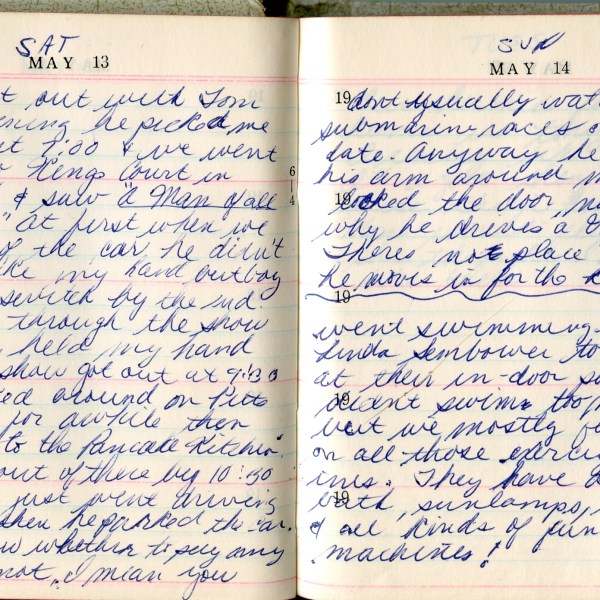 SAT
MAY 13
t out with Tom
ening he picked me
at 7:00 & we went
Kings Court in
& saw "a Man of all
" at first when we
of the car he didn't
ke my hand but boy
switch by the end.
through the show
held my hand
show got out at 9:30
ed around on Pitt
for awhile then
to the Pancake Kitchin.
out of there by 10:30
just went driving
then he parked the car.
w whether to say any
not, I mean you
SUN
MAY 14
19 dont usually wat
submarine races o
date. Anyway he
his arm around m
19 locked the door, no
why he drives a
Theres not place
he moves in for the k
19
went swimming
Linda Sembower to
at their in-door s
19 didnt swim too
but we mostly
on all those exerci
ines. They have
19 bath, sunlamps,
& all kinds of fun
machines!
6
4